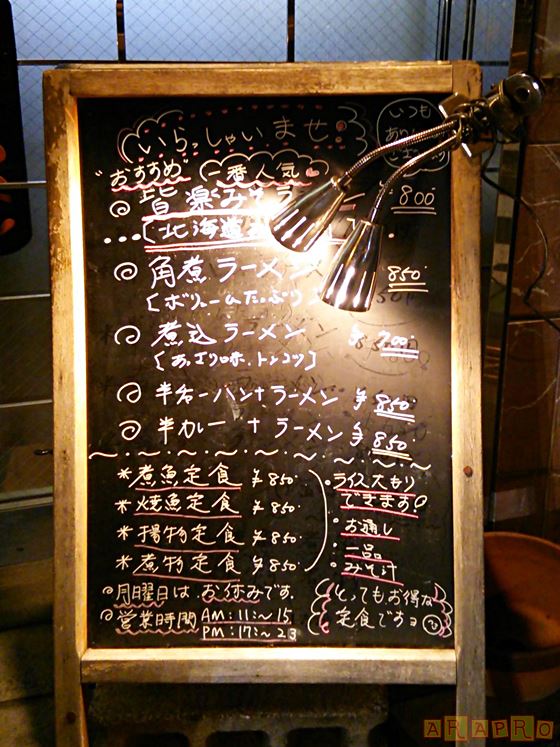 いらっしゃいませ
いつも
あり
ござ
"おすすめ" 一番人気
皆楽みそラーメン 800
・・・【北海道
角煮ラーメン 850
【ボリュームたっぷり
煮込ラーメン ¥700
【あっさり味、トンコツ】
半チャーハン+ラーメン ¥850
半カレー + ラーメン ¥850
*煮魚定食 ¥850
*焼魚定食 ¥850
*揚物定食 ¥850
*煮物定食 ¥850
・ライス大もり
できます
・お通し
・一品
・みそ汁
月曜日は、お休みです。
営業時間 AM:11:~15
PM:17:~23
とってもお得な
定食ですョ
ARAPRO